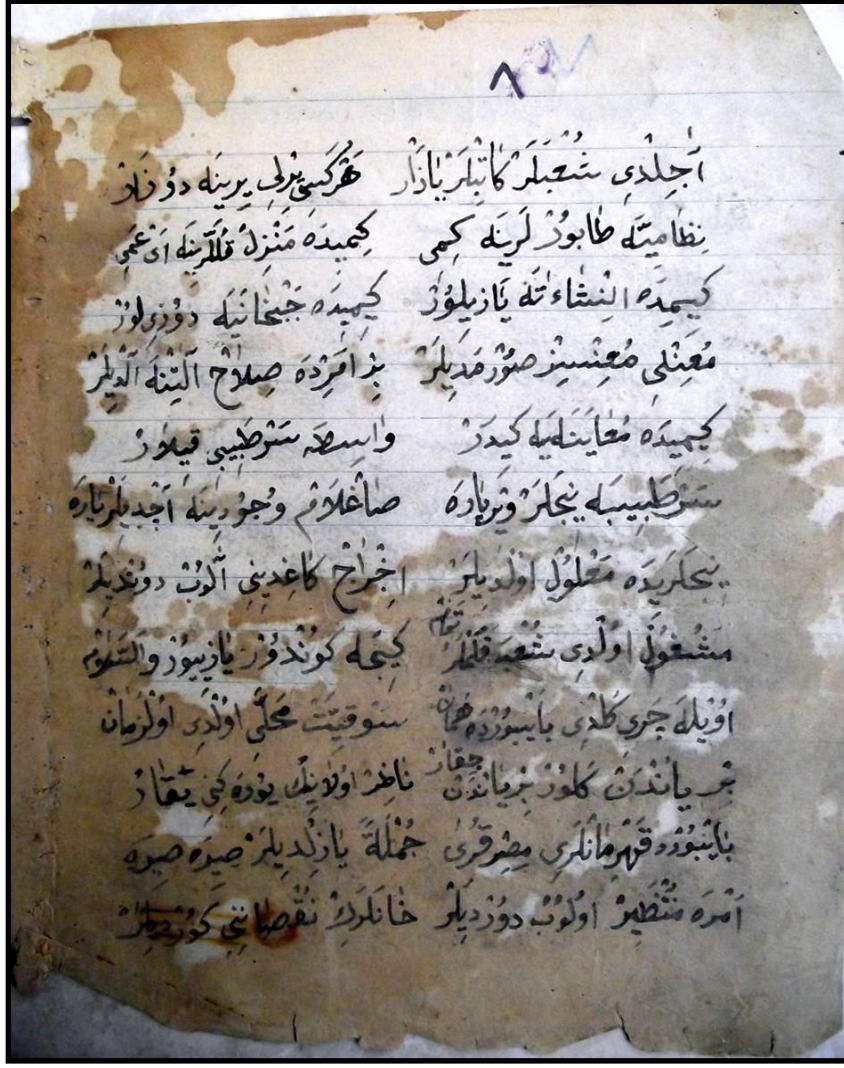 ٨
آجِلْدِي شُعْبَلَرْ كَاتِبْلَرْ يَازَارْ هَرْكَسِي بِرْلِي يِرِينَه دُوزَارْ
نِظَامِيَّه طَابُورْ لَرِينَه كِمِى كِيمِيدَه مَنْزِلْ قُللَّرِينَه اَىْ عَمِي
كِيمِيدَه اِنْشَاءَاتَه يَازِيلُوْرْ كِيمِيدَه جَبْخَانَيَه دُوزِيلُورْ
مُعِنْلِي مُعِنْسِيزْ صُورْمَدِيلَرْ بِرْ اَمِرْدَه صِلَاحْ اَلْتِنَه اَلْدِيلَرْ
كِيمِيدَه مُعَايَنَه يَه كِيدَرْ وَاسِطَه سَرْطَبِيبِي قِيلَارْ
سَرْطَبِيبَه نِجَلَرْ وَيرِيارَه صَاغْلَامْ وُجُودِينَه آجْدِيلَرْ يَارَه
نِجَلَرِيدَه مَعْلُولْ اُولْدِيلَرْ اِخْرَاجْ كَاغِدِينِي اَلُوبْ دُونْدِيلَرْ
مَشْغُولْ اُولْدِى شُعْبَه قَلَمْلَرْ تَمَامْ كِيجَه كُونْدُوزْ يَازِييُورْ وَالسَّلَامْ
اُوْيْلَه جَرِي كَلْدِي بَايْبُورْدَه هَمَانْ سَوْقِيَّتْ مَحَلِّي اُولْدِي اُولْزَمَانْ
بِرْ يَانْدَنْ كَلُورْ بِرْيَانْدَنْ جِقَارْ نَاظِرْ اُولَانِكْ يُورَه كِنِي يَقَارْ
بَايْبُورْد قَهْرَمَانْلَرِي مِصِرقُرَى جُمْلَةً يَازِلْدِيلَرْ صِيرَه صِيرَه
اَمْرَه مُنْتَظِيرْ اُولُوبْ دُوزْدِيلَرْ خَانَلَرِكْ نُقْصَانِنِي كُورْدِيلَرْ